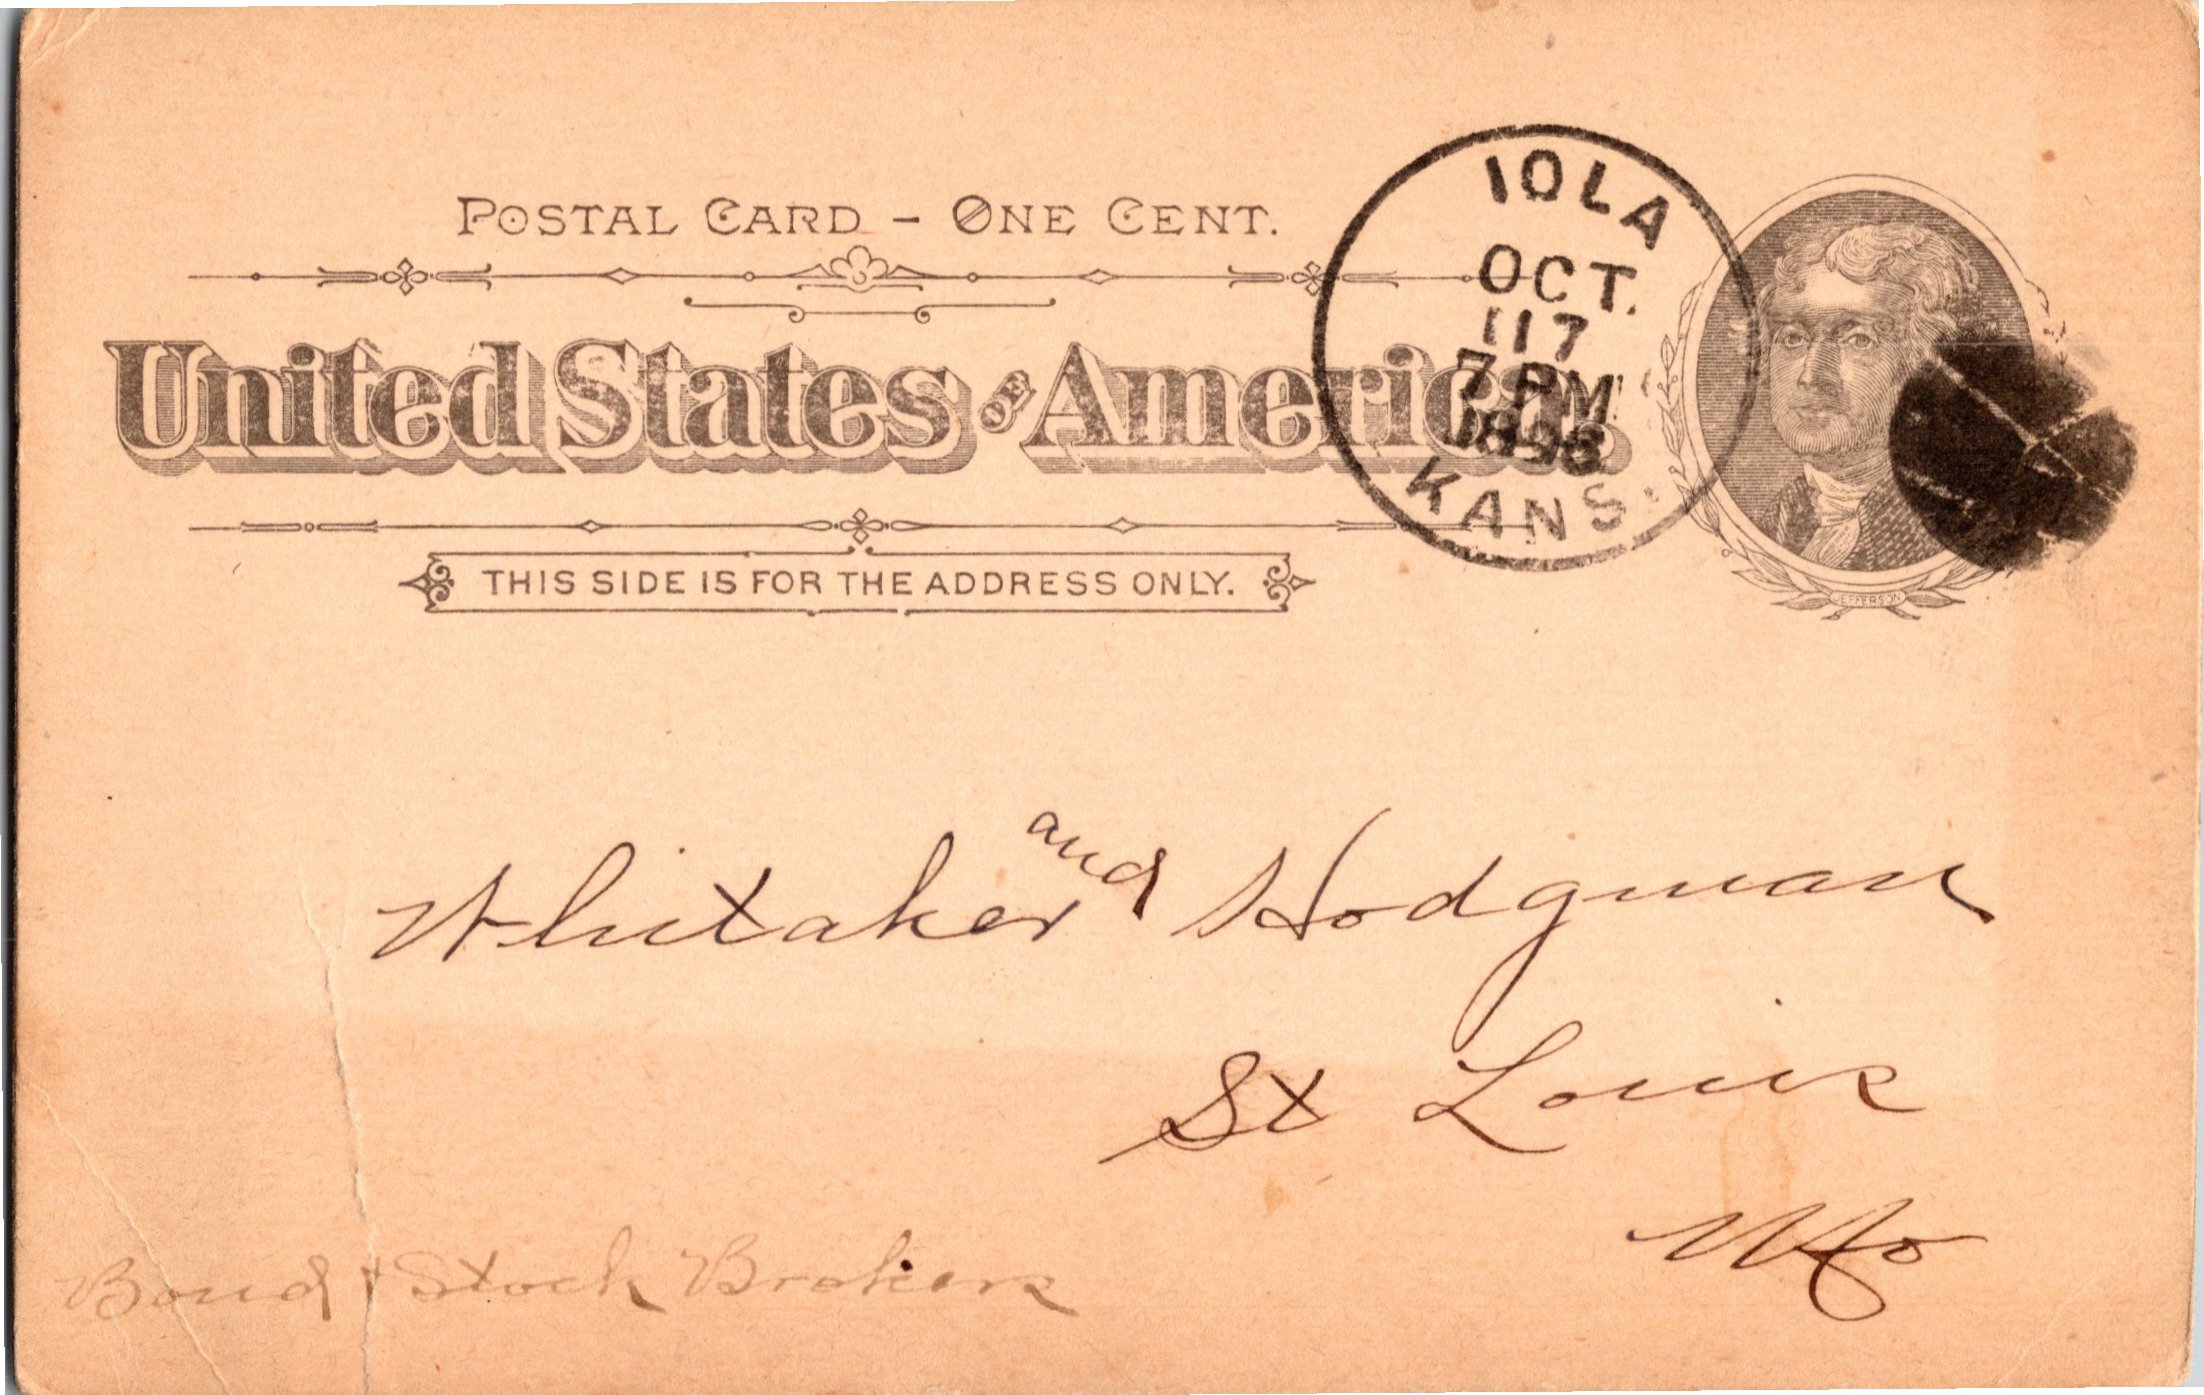 POSTAL CARD – ONE CENT.
United States of America.
THIS SIDE IS FOR THE ADDRESS ONLY.
JEFFERSON
IOLA
OCT.
17
7 PM
KANS.
Whitaker and Hodgman
St Louis
Mo
Bond & Stock Brokers